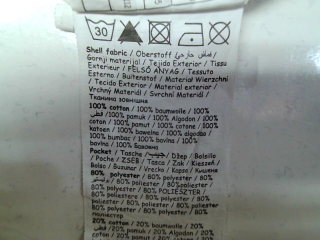 30
Shell fabric / Oberstoff /
Gornji materijal / Tejido Exterior / Tissu
Exterieur / FELSŐ ANYAG / Tessuto
Esterno / Buitenstof / Material Wierzchni
/ Tecido Exterior / Material exterior /
Vrchný Materiál / Svrchní Materiál /
Тканина зовнішня
100% cotton / 100% baumwolle / 100%
قطن / 100% pamuk / 100% Algodon / 100%
coton / 100% pamut / 100% cotone / 100%
katoen / 100% bawełna / 100% algodão
/ 100% bumbac / 100% bavlna / 100%
bavlna / 100% бавовна
Pocket / Tasche / جيب / Džep / Bolsillo
/ Poche / ZSEB / Tasca / Zak / Kieszeń /
Bolso / Buzunar / Vrecko / Kapsa / Кишеня
80% polyester / 80% polyester / 80%
/ 80% poliester / 80% poliester /
80% polyester / 80% POLIÉSZTER /
80% poliestere / 80% polyester / 80%
poliester / 80% poliéster / 80% poliester
/ 80% polyester / 80% polyester / 80%
поліестер
20% cotton / 20% baumwolle / 20%
/ 20% pamuk / 20% Algodon / 20%